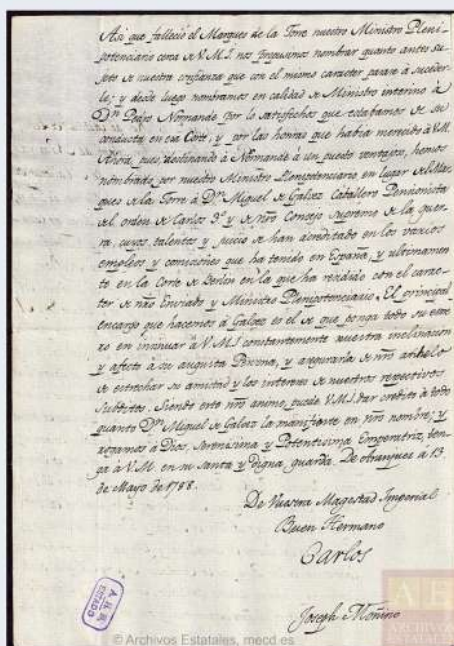 Asi que falleció el Marques de la Torre nuestro Ministro Pleni-
potenciario cerca de V.M.I. nos propusimos nombrar quanto antes su-
jeto de nuestra confianza que con el mismo caracter pasase à suceder-
le; y desde luego nombramos en calidad de Ministro interino à
Dn. Pedro Normande por lo satisfechos que estabamos de su
conducta en esa Corte, y por las honras que habia merecido à V.M.
Ahora, pues, destinando à Normande à un puesto ventajoso, hemos
nombrado por nuestro Ministro Plenipotenciario, en lugar del Mar-
ques de la Torre à Dn. Miguel de Galvez Caballero Pensionista
del orden de Carlos 3º. y de nrô Consejo Supremo de la guer-
ra, cuyos talentos y juicio se han acreditado en los varios
empleos y comisiones que ha tenido en España, y ultimamen-
te en la Corte de Berlin en la que ha residido con el carac-
ter de nrô Enviado y Ministro Plenipotenciario. El principal
encargo que hacemos à Galvez es el de que ponga todo su esme-
ro en insinuar à V.M.I. constantemente nuestra inclinacion
y afecto à su augusta Persona, y asegurarla de nrô anhelo
de estrechar su amistad y los intereses de nuestros respectivos
subditos. Siendo este nrô animo, puede V.M.I. dar credito à todo
quanto Dn. Miguel de Galvez la manifieste en nrô nombre; y
rogamos à Dios, Serenisima y Potentisima Emperatriz, ten-
ga à V.M. en su santa y digna guarda. De Aranjuez à 13
de Mayo de 1788.
De Vuestra Magestad Imperial
Buen Hermano
Carlos
Joseph Moñino
A.H.N.
ESTADO
© Archivos Estatales, mecd.es
ARCHIVOS
ESTATALES